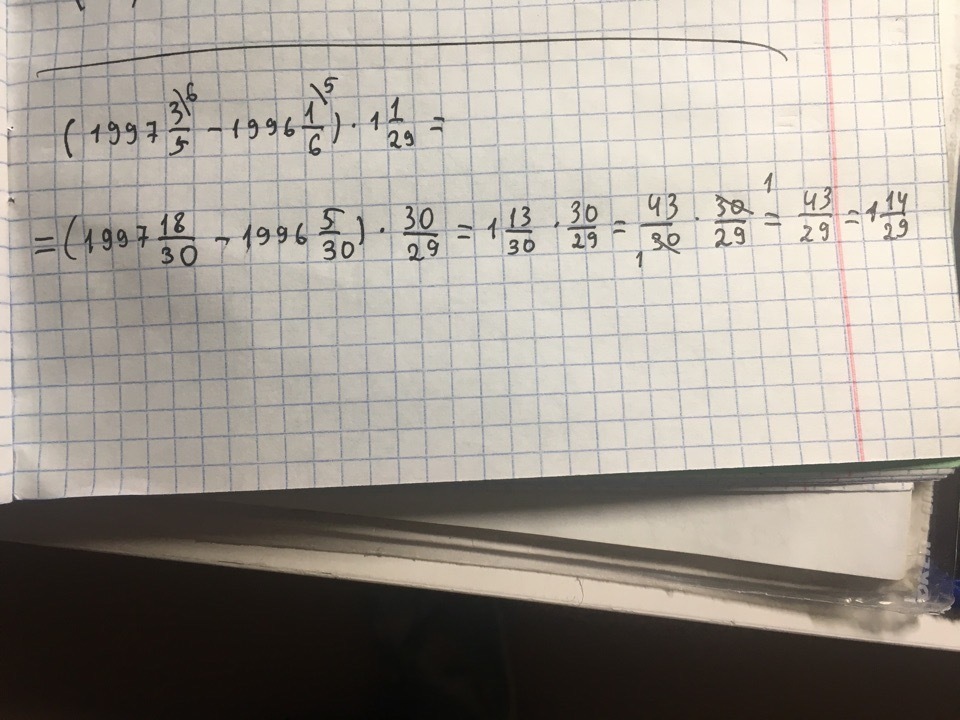 (1997 3\6/5 − 1996 1\5/6) · 1 1/29 =
= (1997 18/30 − 1996 5/30) · 30/29 = 1 13/30 · 30/29 = 43/30 1 · 30/29 1 = 43/29 = 1 14/29